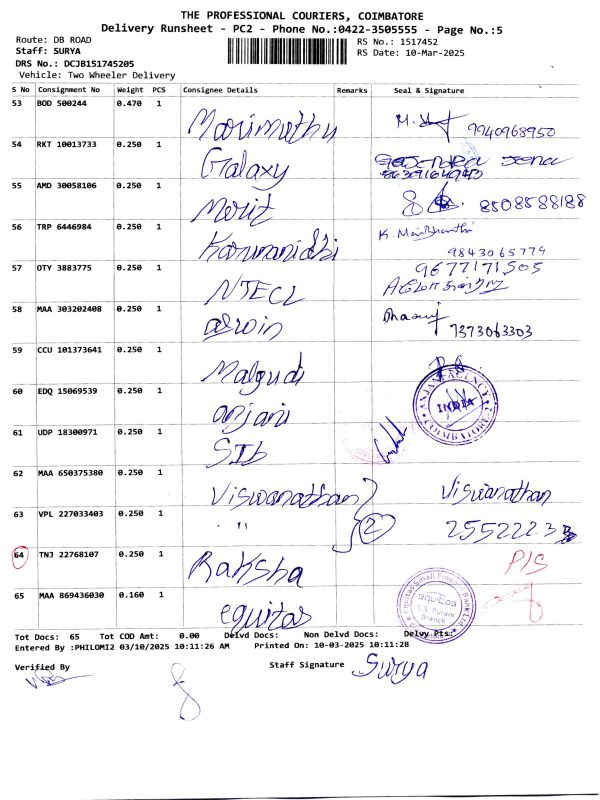 THE PROFESSIONAL COURIERS, COIMBATORE
Delivery Runsheet - PC2 - Phone No.:0422-3505555 - Page No.:5
Route: DB ROAD
RS No.: 1517452
Staff: SURYA
RS Date: 10-Mar-2025
DRS No.: DCJB151745205
Vehicle: Two Wheeler Delivery
S No Consignment No Weight PCS Consignee Details Remarks Seal & Signature
53 BOD 500244 0.470 1 Marimuthu 9940968950
54 RKT 10013733 0.250 1 Galaxy
55 AMD 30058106 0.250 1 Merit 8508588188
56 TRP 6446984 0.250 1 Karunanidhi K. ManiBharathi
9843065774
57 OTY 3883775 0.250 1 NTECL 9677171505
58 MAA 303202408 0.250 1 aswin 7373063303
59 CCU 101373641 0.250 1 Malgudi
60 EDQ 15069539 0.250 1 anjani ANJANI AGENCY INDIA COIMBATORE
61 UDP 18300971 0.250 1 STb
62 MAA 650375380 0.250 1 Viswanathan Viswanathan
63 VPL 227033403 0.250 1 " 2 2552223
64 TNJ 22768107 0.250 1 Raksha P/S
65 MAA 869436030 0.160 1 equitas Equitas Small Finance Bank Ltd. equitas R.S. Puram Branch
Tot Docs: 65 Tot COD Amt: 0.00 Delvd Docs: Non Delvd Docs: Delvy Pts:
Entered By :PHILOMI2 03/10/2025 10:11:26 AM Printed On: 10-03-2025 10:11:28
Verified By
Staff Signature Surya